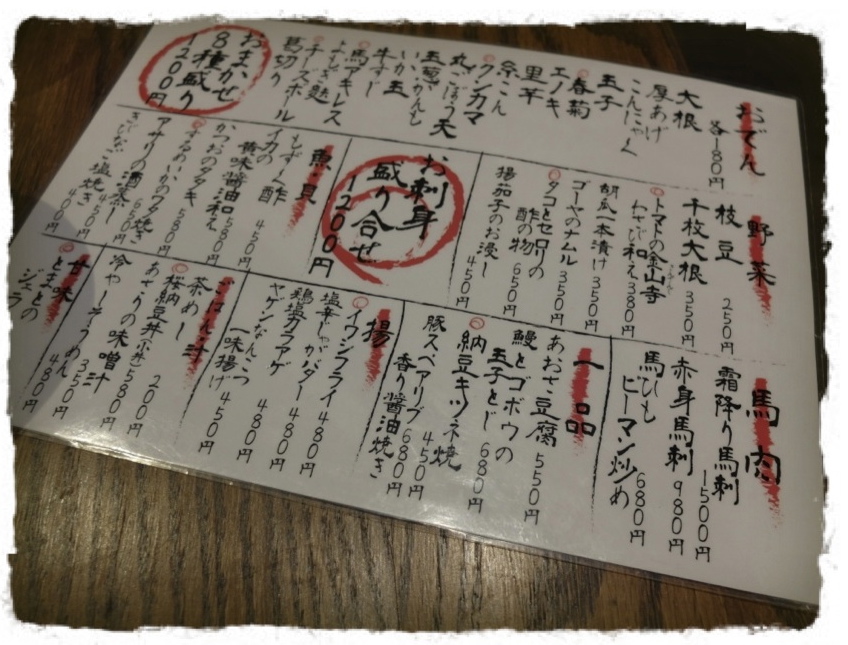 おでん
各180円
大根
厚あげ
こんにゃく
玉子
春菊
エノキ
里芋
糸こん
クンカマ
丸ごぼう天
玉葱
いか玉
牛すじ
馬アキレス
よもぎ麩
チーズボール
葛切り
おまかせ
8種盛り
1200円
野菜
枝豆 250円
千枚大根 350円
トマトの金山寺
わさび和え 380円
胡瓜一本漬け 350円
ゴーヤのナムル 350円
タコとセロリの
酢の物 650円
揚茄子のお浸し 450円
お刺身
盛り合せ
1200円
魚・貝
もずく酢 450円
イカの
黄味醤油和え 550円
かつおのタタキ 580円
するめいかのワタ焼き 680円
アサリの酒蒸し 480円
きびなご塩焼き 400円
馬肉
霜降り馬刺 1500円
赤身馬刺 980円
馬ひも
ピーマン炒め 680円
一品
あおさ豆腐 550円
鰻とゴボウの
玉子とじ 680円
納豆キツネ焼 450円
豚スペアリブ
香り醤油焼き 680円
揚
イワシフライ 480円
塩辛じゃがバター 480円
鶏塩カラアゲ 480円
ヤゲンなんこつ
一味揚げ 450円
ごはん・汁
茶めし 200円
桜納豆丼(小丼) 580円
あさりの味噌汁 350円
冷やしそうめん 480円
甘味
とまとの
ジェラ